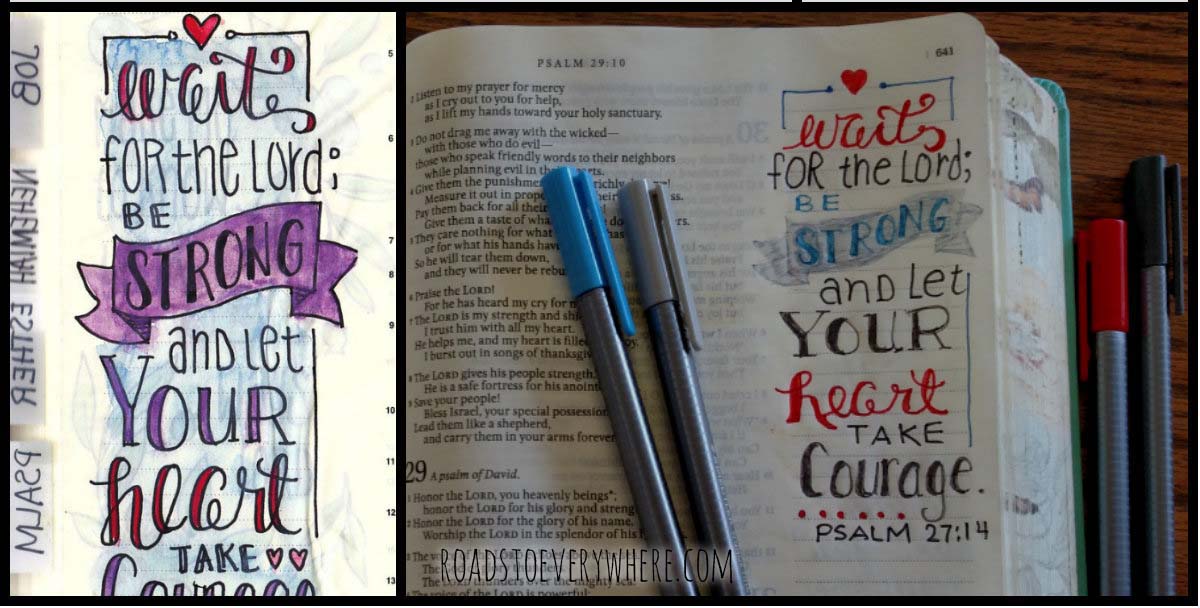 JOB
NEHEMIAH ESTHER
PSALM
5
6
7
8
9
10
11
12
13
wait
for the Lord;
BE
STRONG
and let
YOUR
heart
TAKE
Courage
PSALM 29:10
641
2 Listen to my prayer for mercy
as I cry out to you for help,
as I lift my hands toward your holy sanctuary.
3 Do not drag me away with the wicked—
with those who do evil—
those who speak friendly words to their neighbors
while planning evil in their hearts.
4 Give them the punishment richly
Measure it out in
Pay them back for all their
Give them a taste of what
5 They care nothing for what has
or for what his hands have
So he will tear them down,
and they will never be
6 Praise the LORD!
For he has heard my cry for
7 The LORD is my strength and
I trust him with all my heart.
He helps me, and my heart is filled
I burst out in songs of
8 The LORD gives his people strength.
He is a safe fortress for his
9 Save your people!
Bless Israel, your special
Lead them like a shepherd,
and carry them in your arms forever
29 A psalm of David.
1 Honor the LORD, you heavenly beings*;
honor the LORD for his glory and
2 Honor the LORD for the glory of his name.
Worship the LORD in the splendor of his
3 The
The
The LORD thunders over the mighty sea.
4 The voice of the LORD is powerful;
wait
for the Lord;
BE
STRONG
and let
YOUR
heart
TAKE
Courage.
PSALM 27:14
ROADSTOEVERYWHERE.COM